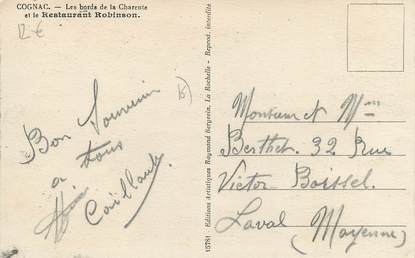 COGNAC. — Les bords de la Charente
et le Restaurant Robinson.
12 €
Bon Souvenir
a tous
Caillaud
15781 - Editions Artistiques Raymond Bergevin, La Rochelle - Reprod. interdite
Monsieur et Mme
Berthet. 32 Rue
Victor Boissel.
Laval (Mayenne)